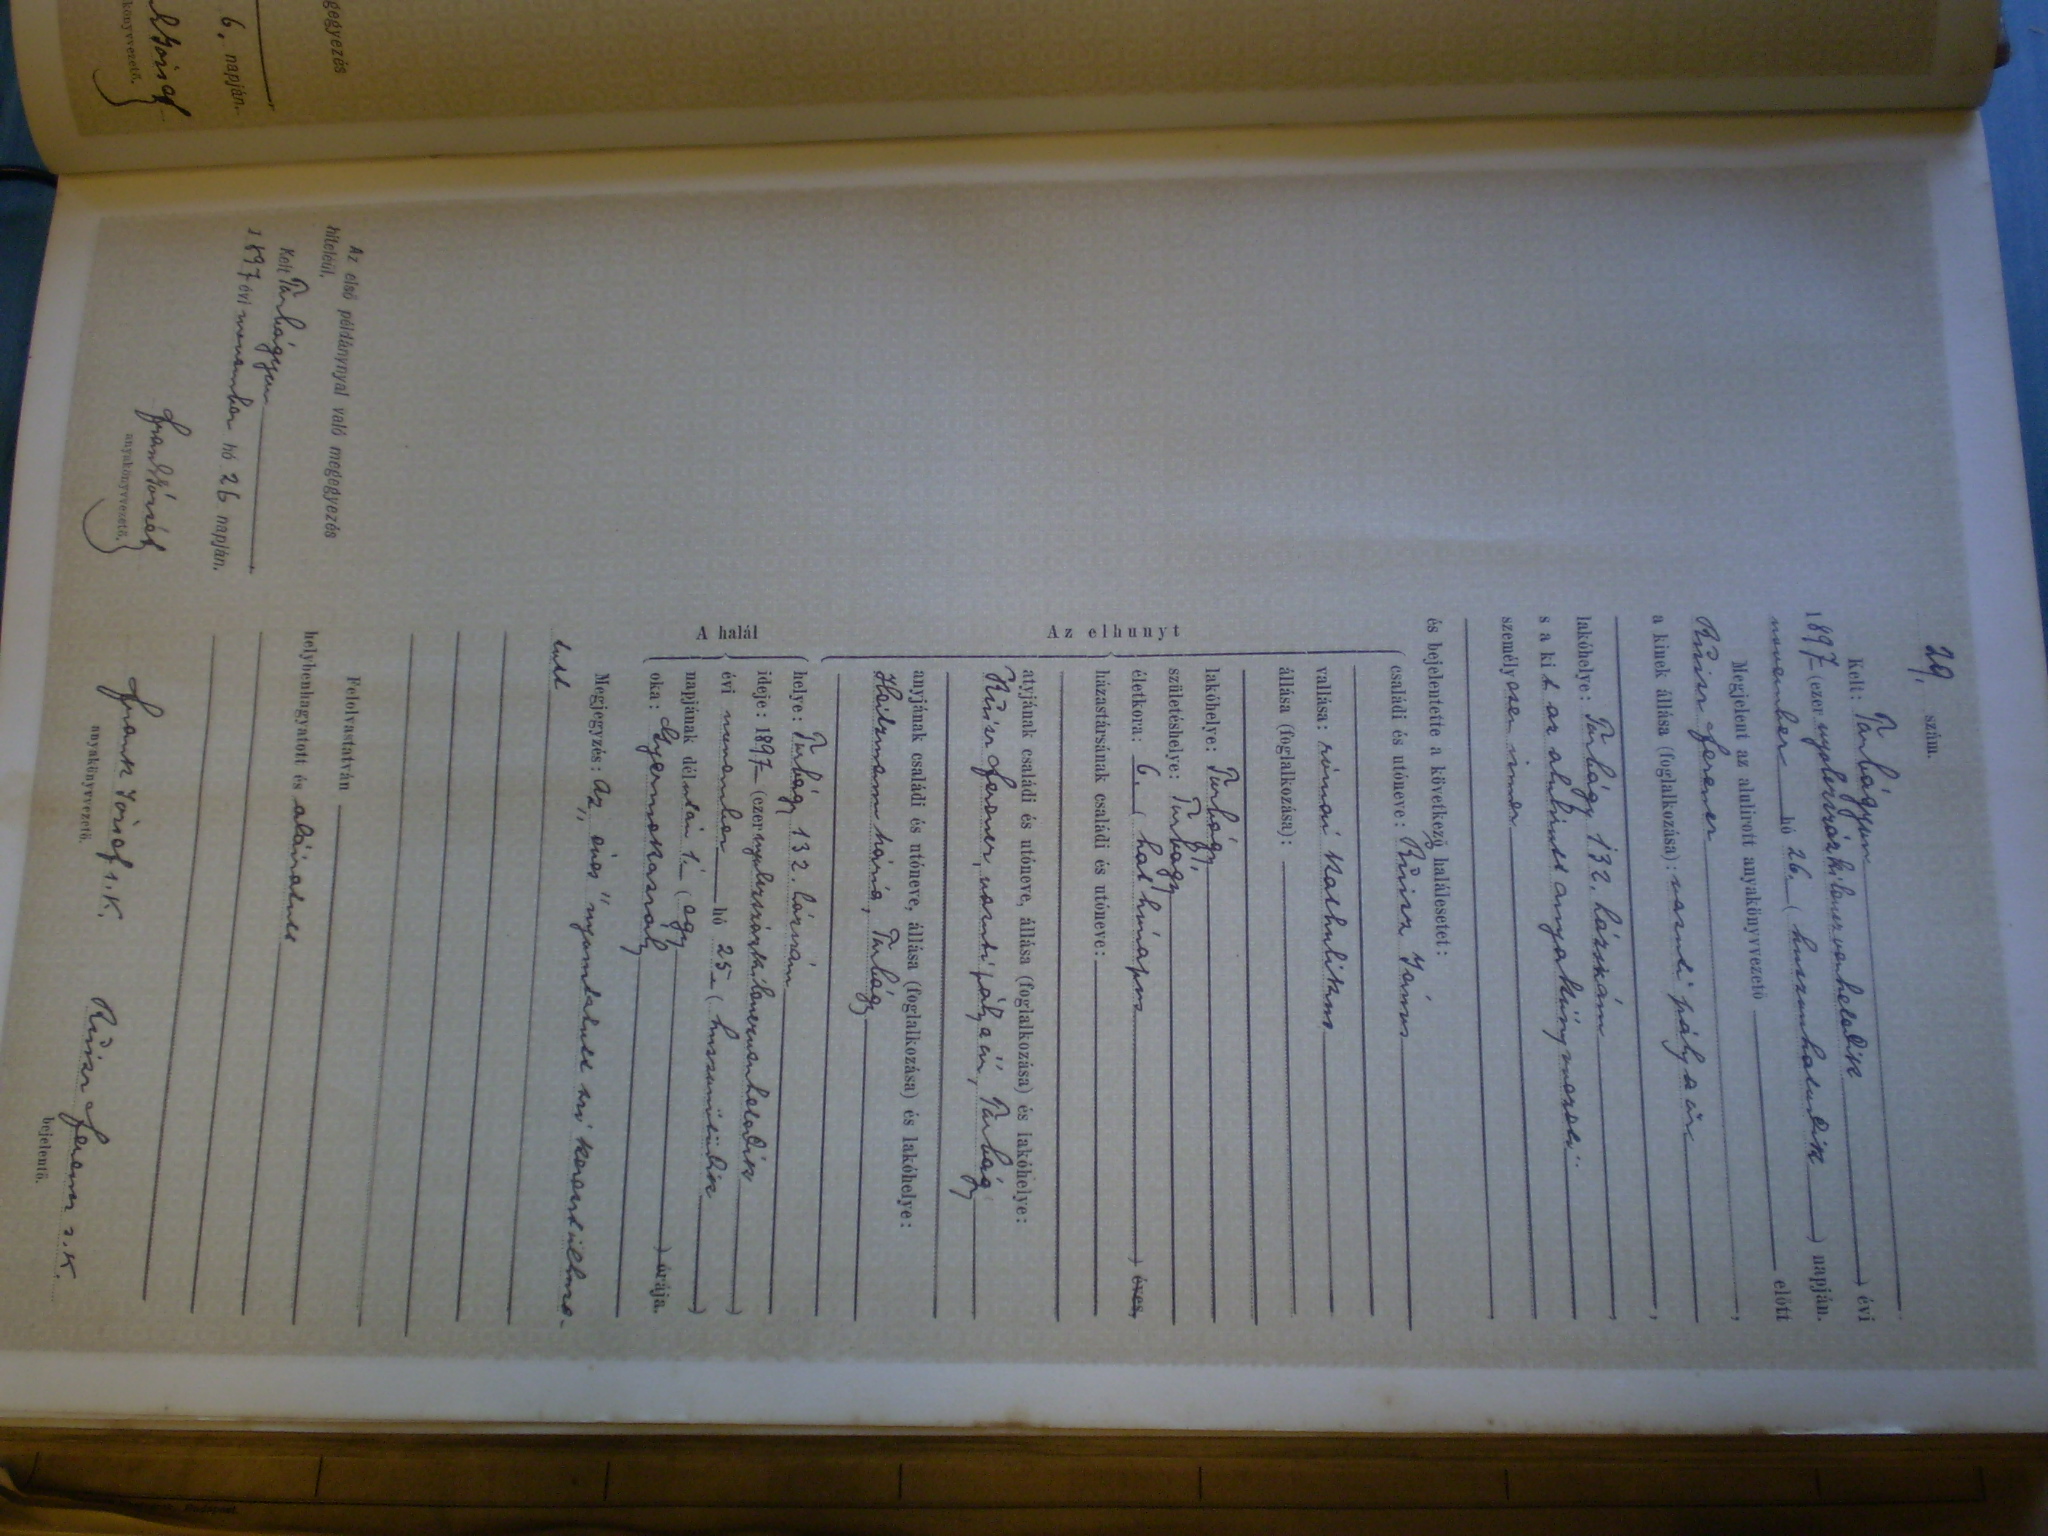 gegyezés
6. napján.
könyvvezető.
29. szám.
Kelt: Turbágyon
1897 (ezer nyolczszázkilenczvenhetedik) évi
november hó 26. (huszonhatodik) napján.
Megjelent az alulirott anyakönyvvezető előtt
Ferencz,
a kinek állása (foglalkozása): vasuti pályaőr,
lakóhelye: Turbágy 132. házszám
s a kit az alulirott anyakönyvvezető
személyesen ismer
és bejelentette a következő halálesetet:
Az elhunyt
családi és utóneve: János
vallása: római katholikus
állása (foglalkozása):
lakóhelye: Turbágy
születéshelye: Turbágy
életkora: 6. (hat hónapos) éves,
házastársának családi és utóneve:
atyjának családi és utóneve, állása (foglalkozása) és lakóhelye:
Ferencz, vasuti pályaőr, Turbágy
anyjának családi és utóneve, állása (foglalkozása) és lakóhelye:
Mária, Turbágy
A halál
helye: Turbágy 132. házszám
ideje: 1897 (ezer nyolczszázkilenczvenhetedik)
évi november hó 25 (huszonötödik)
napjának délután 1. (egy) órája.
oka: Gyermekaszály
Megjegyzés: Az „éves" nyomtatott szó keresztülhuza-
tott
Felolvastatván
helybenhagyatott és aláiratott
Frank József s. k.
anyakönyvvezető.
Ferencz s. k.
bejelentő.
Az első példánynyal való megegyezés
hiteléül.
Kelt Turbágyon
1897 évi november hó 26 napján.
Frank József
anyakönyvvezető.